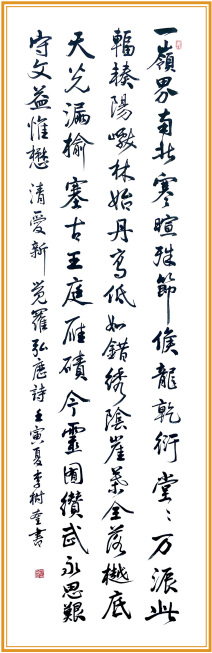 一嶺界南北寒暄殊節候龍乾衍堂〻万派此
輻輳陽暾林始丹高低如錯綉陰崖葉全落樾底
天光漏榆塞古王庭雁磧今靈囿纘武永思艱
守文益惟懋清愛新覺羅弘歷詩壬寅夏李樹奎書